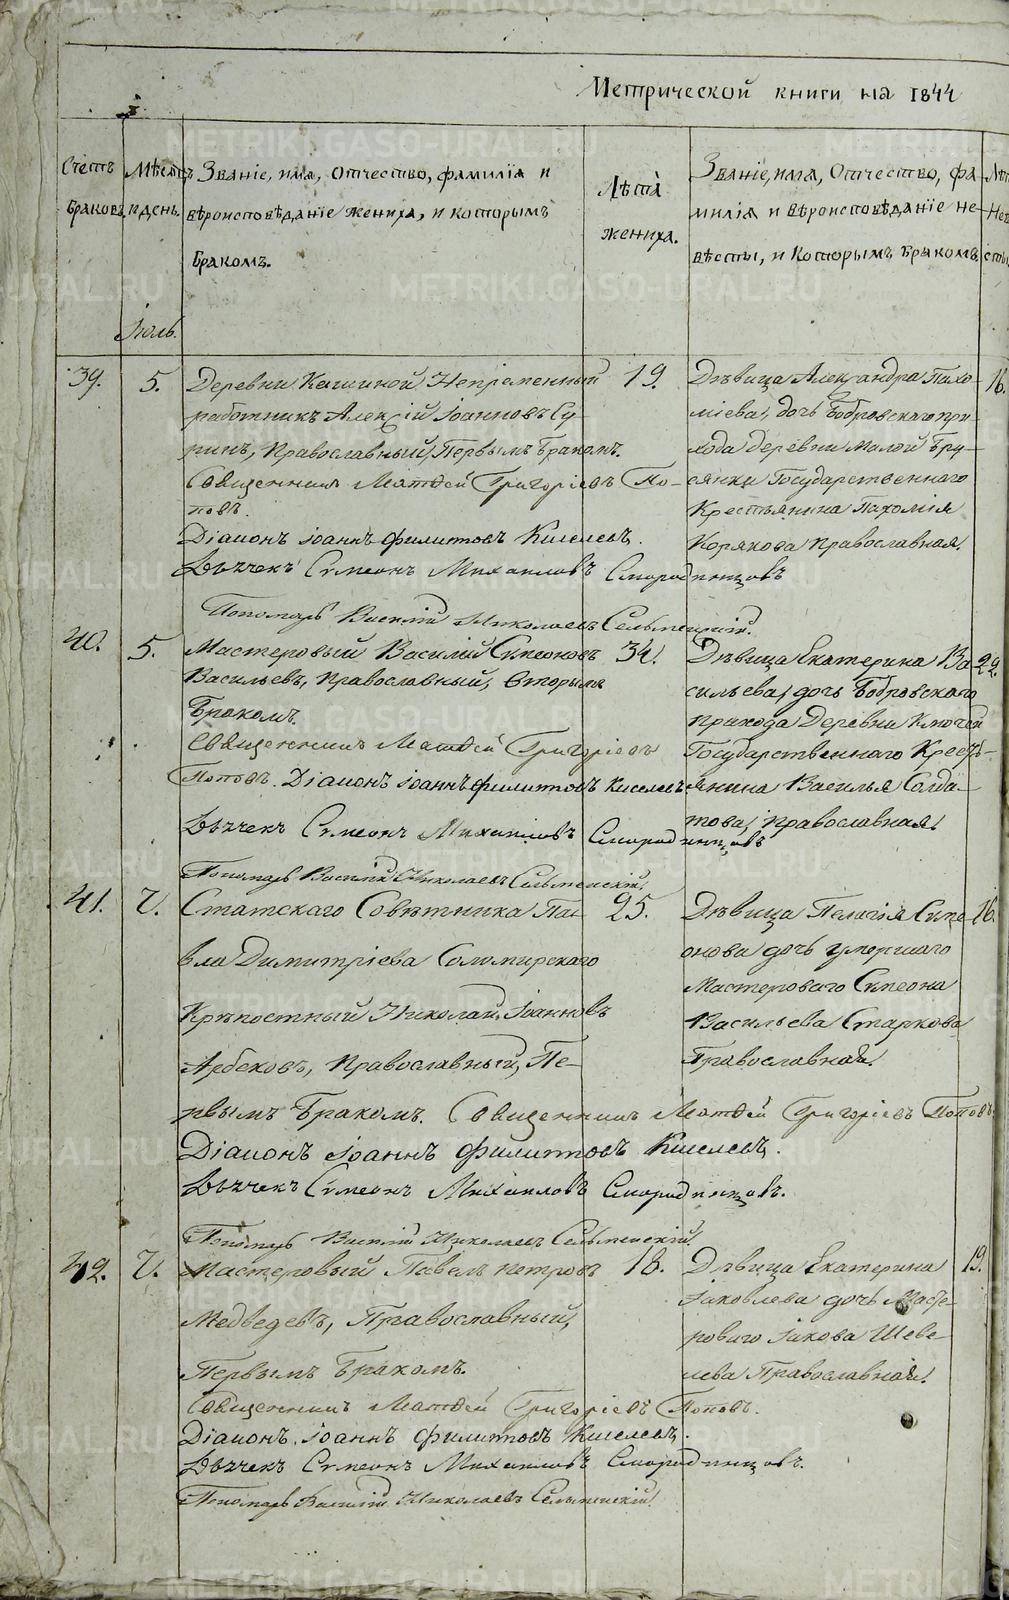 Метрической книги на 1844
Счетъ браковъ.
Мѣсяцъ и день.
Званіе, имя, Отчество, фамилія и
вѣроисповѣданіе жениха, и которымъ
бракомъ.
Лѣта
жениха.
Званіе, имя, Отчество, фа-
милія и вѣроисповѣданіе не-
вѣсты, и которымъ бракомъ
Іюль.
39. 5. Деревни Кашиной Непремѣнный 19.
работникъ Алексій Іоанновъ Су-
ринъ, Православный, Первымъ бракомъ.
Священникъ Матѳей Григоріевъ По-
повъ.
Діаконъ Іоаннъ Филиповъ Киселевъ.
Дьячекъ Симеонъ Михаиловъ Смородинцовъ
Пономарь Василій Николаевъ Сельменскій.
Дѣвица Александра Пахо- 16.
міева, дочь Бобровскаго при-
хода деревни Малой Бру-
сянки Государственнаго
Крестьянина Пахомія
Корякова Православная.
40. 5. Мастеровый Василій Симеоновъ 34.
Васильевъ, Православный, Вторымъ
бракомъ.
Священникъ Матѳей Григоріевъ
Поповъ. Діаконъ Іоаннъ Филиповъ Киселевъ
Дьячекъ Симеонъ Михаиловъ Смородинцовъ
Пономарь Василій Николаевъ Сельменскій.
Дѣвица Екатерина Ва- 22.
сильева, дочь Бобровскаго
прихода Деревни Ключей
Государственнаго Кресть-
янина Василья Солда-
това, Православная.
41. 7. Статскаго Совѣтника Па- 25.
вла Димитріева Соломирскаго
Крѣпостный Николай Іоанновъ
Арбековъ, Православный, Пе-
рвымъ бракомъ. Священникъ Матѳей Григоріевъ Поповъ
Діаконъ Іоаннъ Филиповъ Киселевъ.
Дьячекъ Симеонъ Михаиловъ Смородинцовъ.
Пономарь Василій Николаевъ Сельменскій.
Дѣвица Пелагія Симе- 16.
онова дочь умершаго
Мастероваго Симеона
Васильева Старкова
Православная.
42. 7. Мастеровый Павелъ Петровъ 18.
Медведевъ, Православный,
Первымъ бракомъ.
Священникъ Матѳей Григоріевъ Поповъ.
Діаконъ Іоаннъ Филиповъ Киселевъ.
Дьячекъ Симеонъ Михаиловъ Смородинцовъ.
Пономарь Василій Николаевъ Сельменскій.
Дѣвица Екатерина 19.
Іаковлева дочь Масте-
роваго Іакова Шеве-
лева Православная.
METRIKI.GASO-URAL.RU